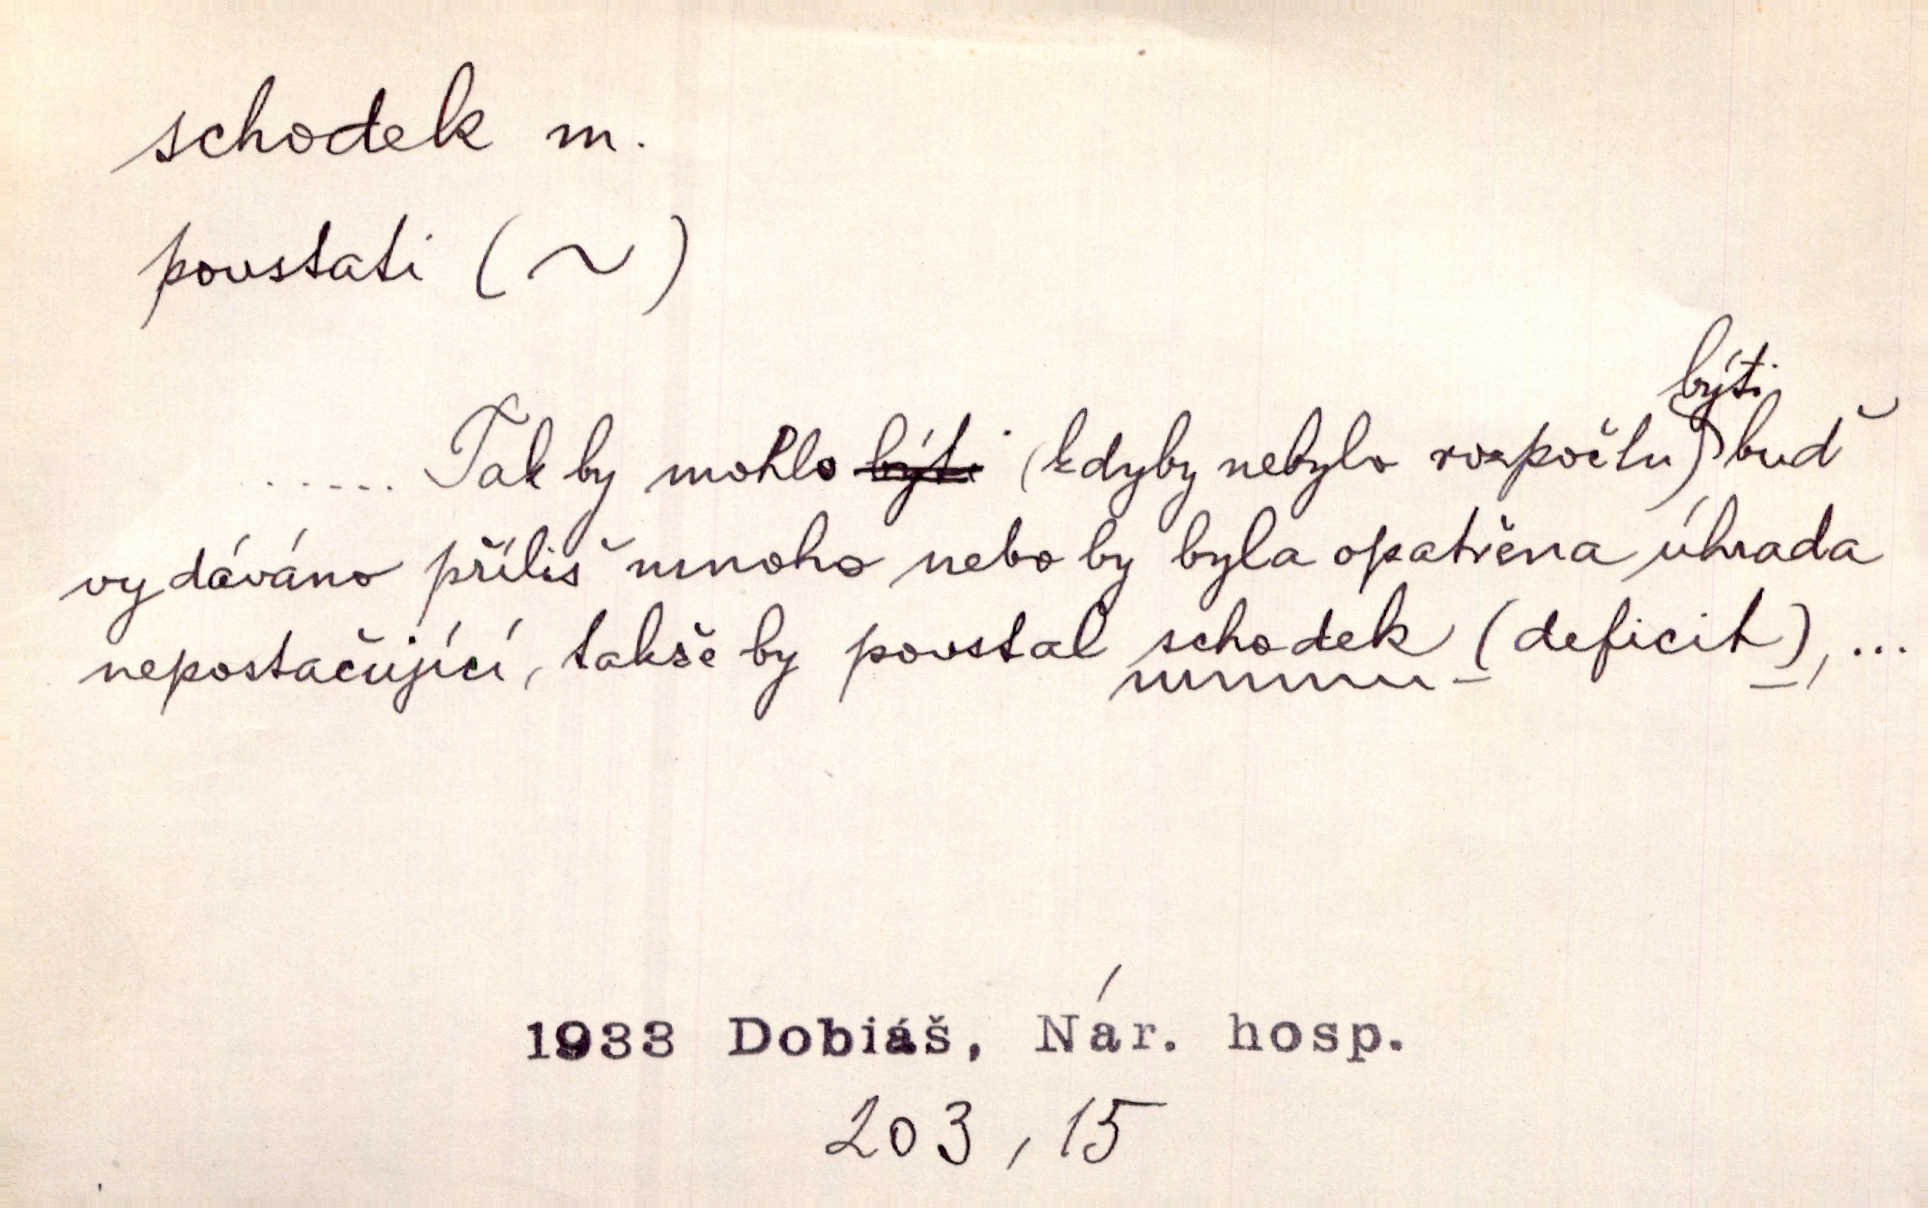 schodek m.
povstati (~)
...... Tak by mohlo býti (kdyby nebylo rozpočtu) býti buď
vydáváno příliš mnoho nebo by byla opatřena úhrada
nepostačující, takže by povstal schodek (deficit), ...
1933 Dobiáš, Nár. hosp.
203, 15